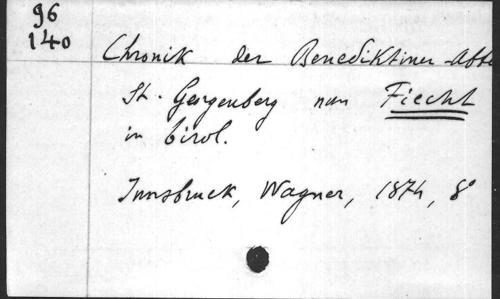 96
140
Chronik der Benediktiner-Abte
St. Georgenberg nun Fiecht
in Tirol.
Innsbruck, Wagner, 1874, 8°